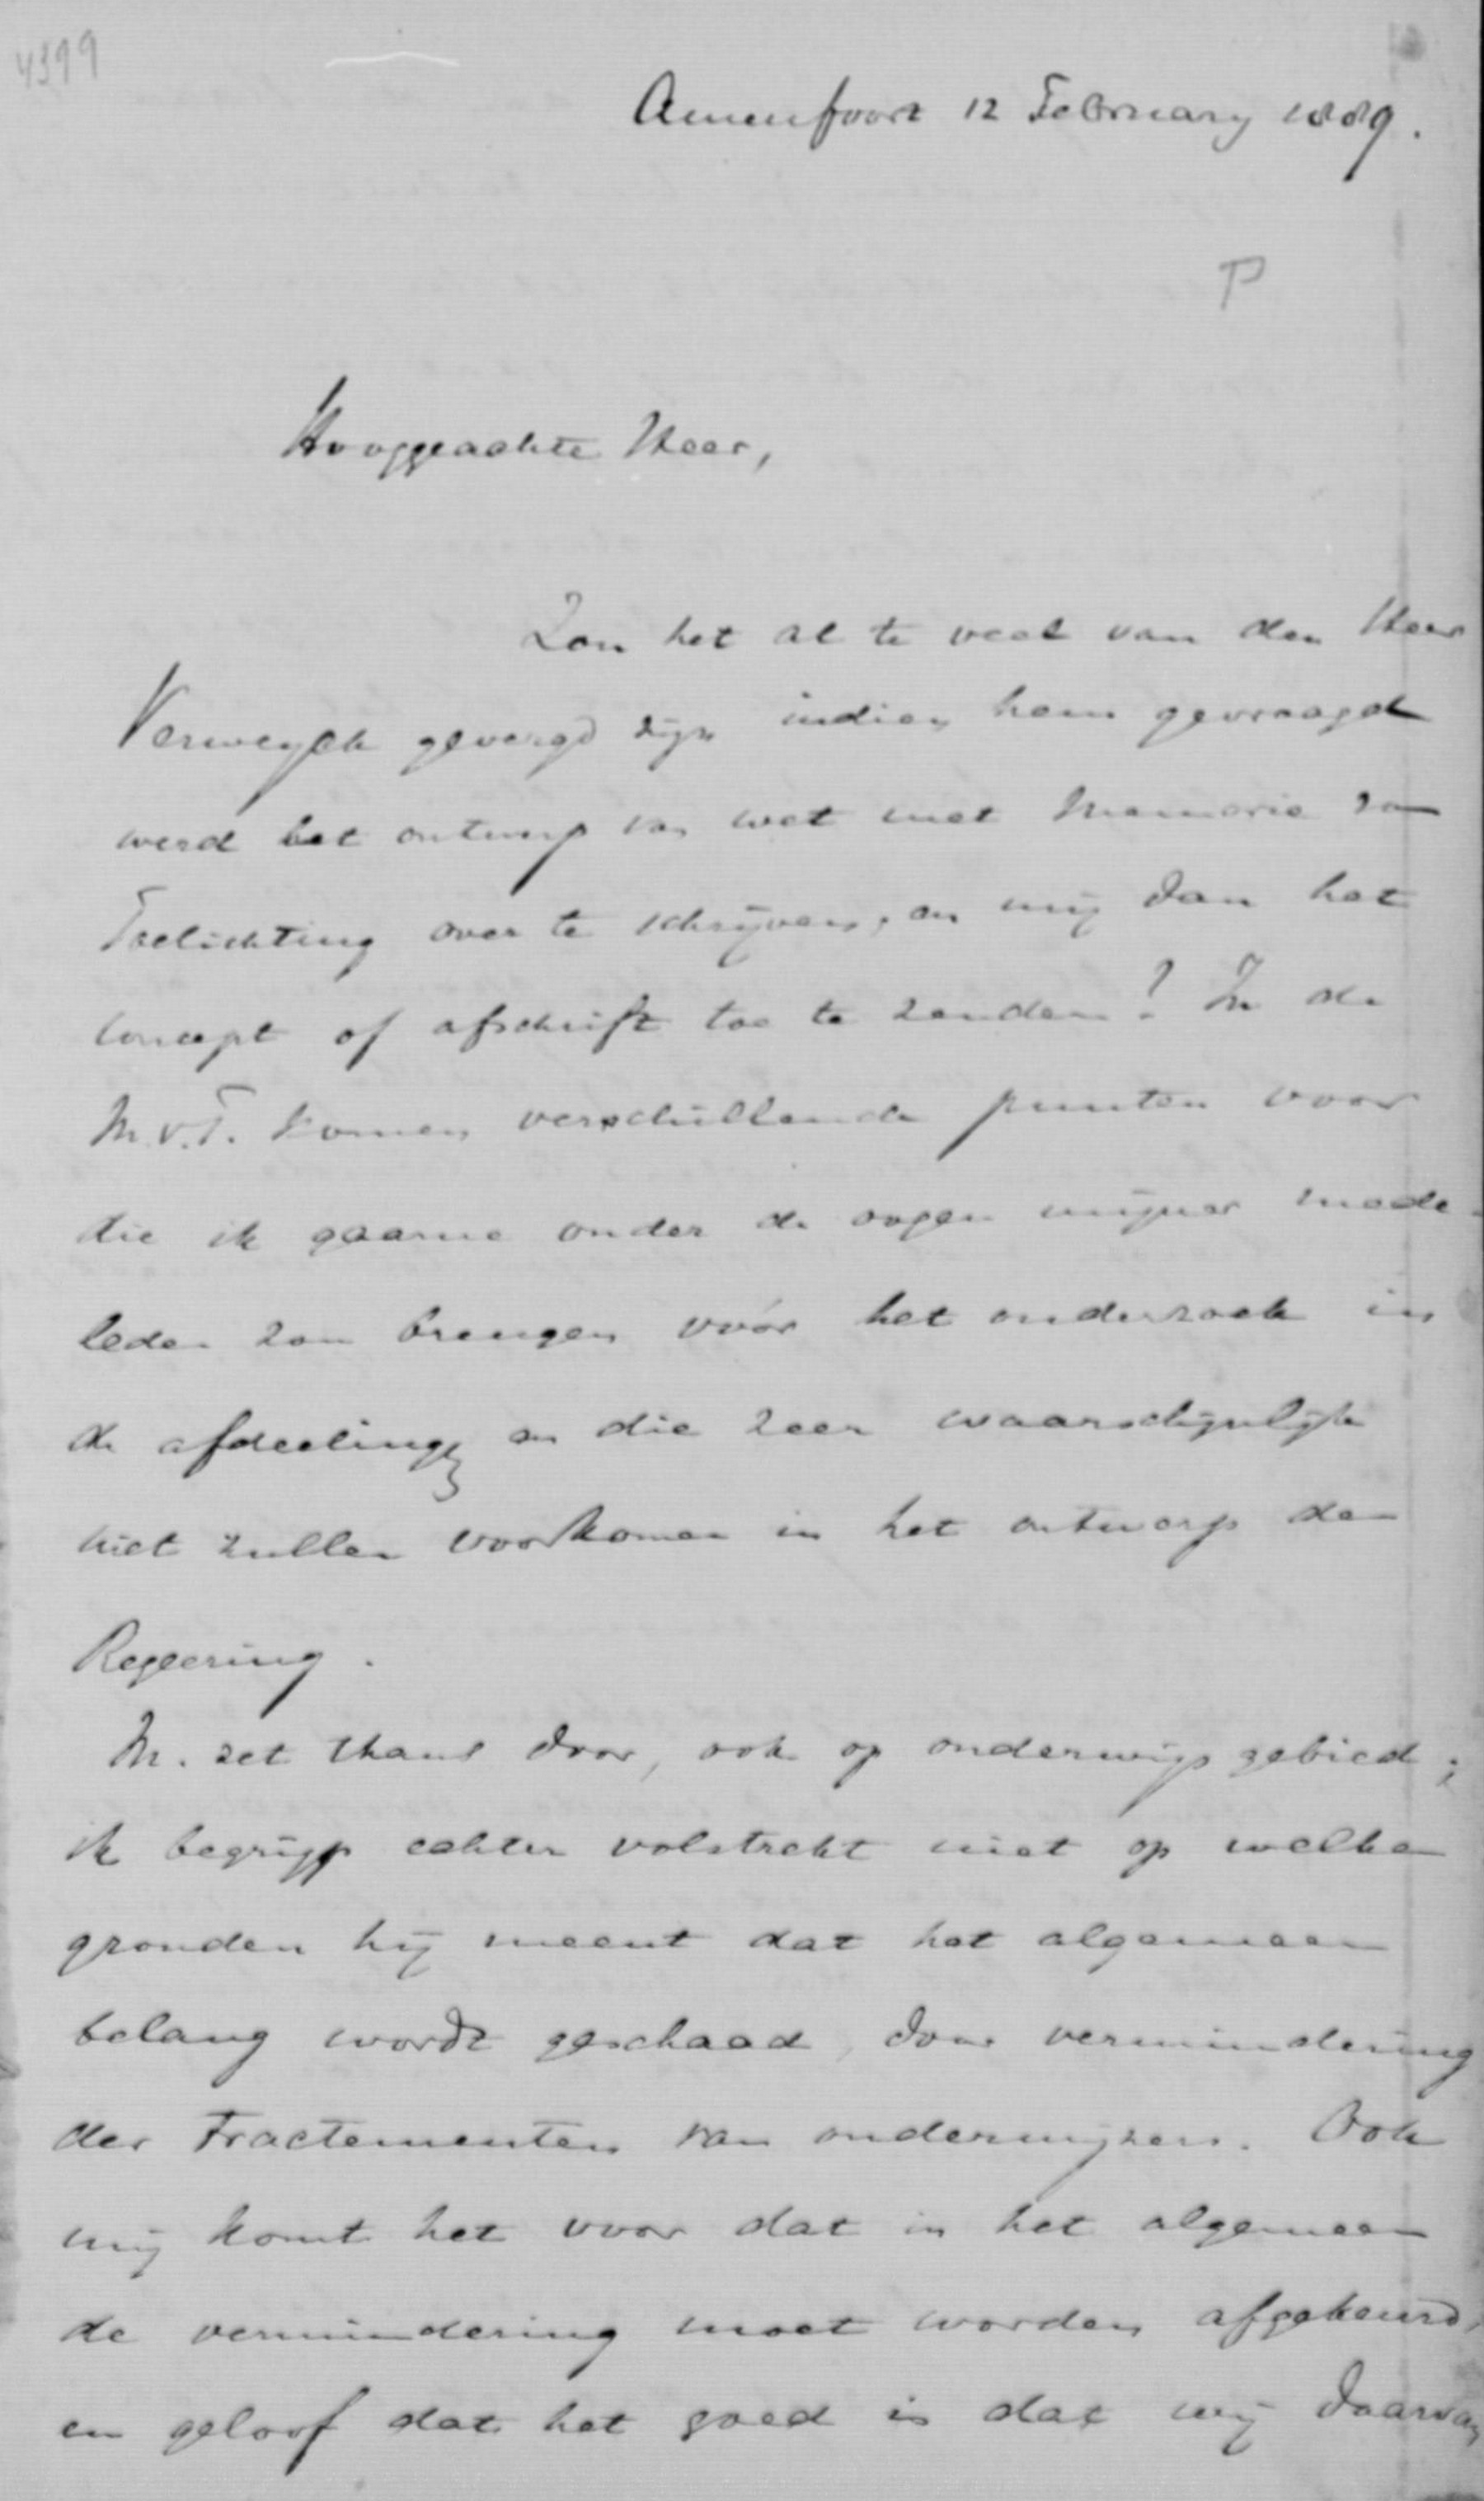 4399
Amersfoort 12 February 1889.
P
Hooggeachte Heer,
Zou het al te veel van den Heer
Verweyck gevergd zijn indien hem gevraagd
werd het ontwerp van wet met Memorie van
Toelichting over te schrijven, en mij dan het
concept of afschrift toe te zenden? In de
M.v.T. komen verschillende punten voor
die ik gaarne onder de oogen mijner mede-
leden zou brengen vóór het onderzoek in
de afdeelingen en die zeer waarschijnlijk
niet zullen voorkomen in het ontwerp der
Regeering.
M. zet thans door, ook op onderwijs gebied;
ik begrijp echter volstrekt niet op welke
gronden hij meent dat het algemeen
belang wordt geschaad, door vermindering
der Tractementen van onderwijzers. Ook
mij komt het voor dat in het algemeen
de vermindering moet worden afgekeurd,
en geloof dat het goed is dat wij daarvan